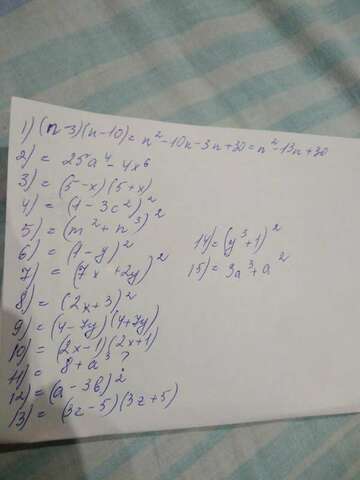 1) (n-3)(n-10) = n²-10n-3n+30 = n²-13n+30
2) = 25a⁴-4x⁶
3) = (5-x)(5+x)
4) = (1-3c²)²
5) = (m²+n³)²
6) = (1-y)²
7) = (7x+2y)²
8) = (2x+3)²
9) = (4-7y)(4+7y)
10) = (2x-1)(2x+1)
11) = 8+a³?
12) = (a-3b)²
13) = (3z-5)(3z+5)
14) = (y³+1)²
15) = 9a³+a²